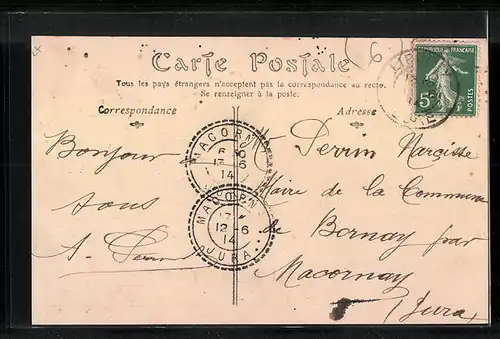 6
Carte Postale
Tous les pays étrangers n'acceptent pas la correspondance au recto.
Se renseigner à la poste.
Correspondance
Adresse
REPUBLIQUE FRANÇAISE
5c
POSTES
MACORN
13-6
14
MACORN
12-6
14
JURA
Bonjour
à tous
Perrin Narcisse
Maire de la Commune
de Bornay par
Macornay
(Jura)